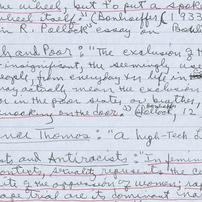 the wheel, but to put a spoke
wheel itself" (Bonhoeffer, 1933
in R. Pollock essay on Bonh
ch and Poor: "The exclusion of th
insignificant, the seemingly u
people, from everyday life in
may actually mean the exclusion
or in the poor sister or brother,
knocking on the door." (Pollock, 12
ner Thomas: "a high-tech L
sts and Antiracists: "In femin
context, sexuality represents the ce
ute of the oppression of women; rap
rape trial are its dominant na